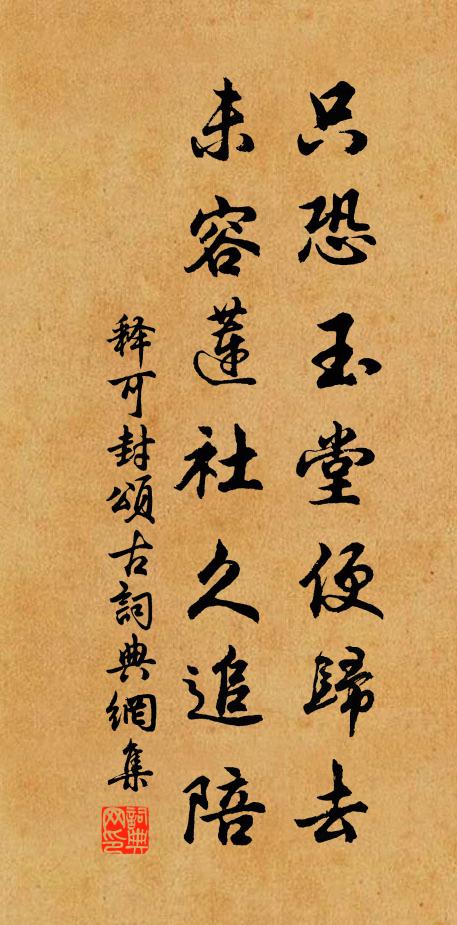 只恐玉堂便歸去
未容蓮社久追陪
释可封頌古詞典網集
詞典网印